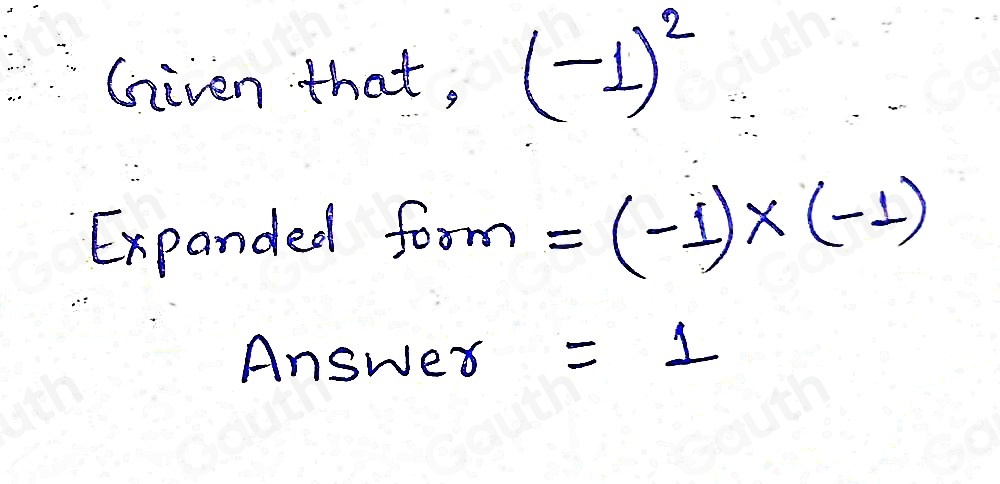 Given that, (-1)²
Expanded form = (-1)×(-1)
Answer = 1